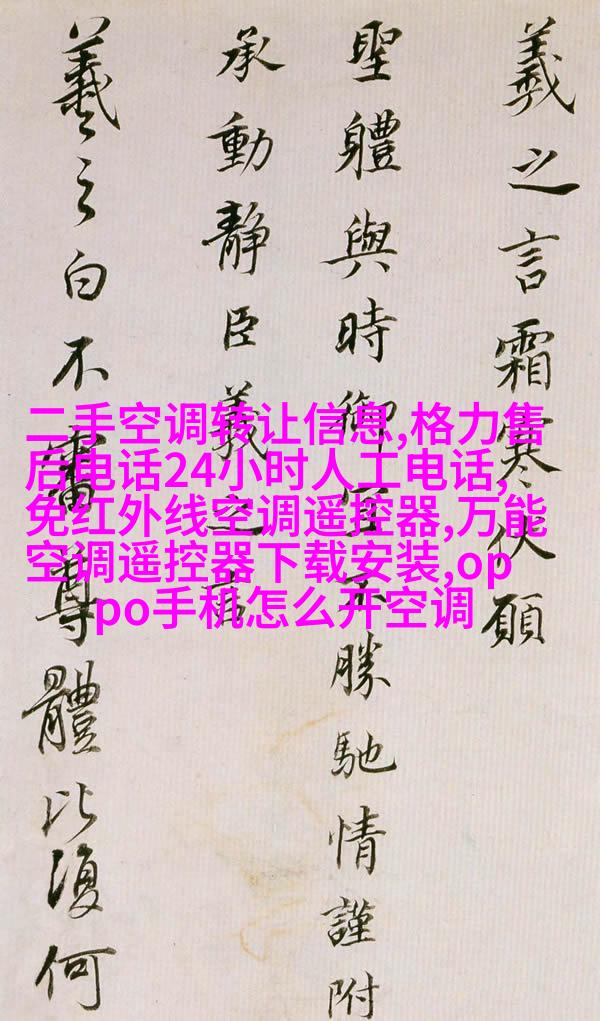 羲之言霜寒伏願
聖體與時御宜不勝馳情謹附
承動靜臣羲之言
羲之白不審尊體比復何
二手空调转让信息,格力售
后电话24小时人工电话,
免红外线空调遥控器,万能
空调遥控器下载安装,op
po手机怎么开空调